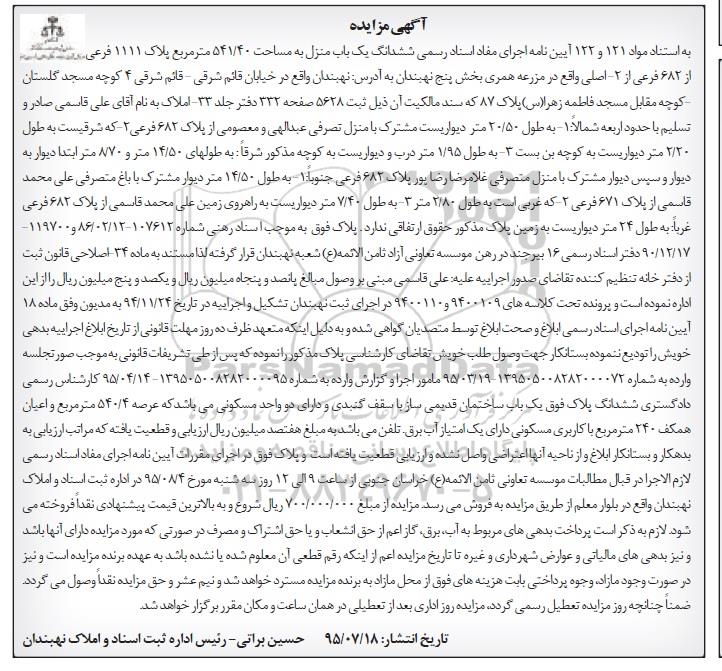 آگهی مزایده
به استناد مواد ۱۲۱ و ۱۲۲ آیین نامه اجرای مفاد اسناد رسمی ششدانگ یک باب منزل به مساحت ۵۴۱/۴۰ مترمربع پلاک ۱۱۱۱ فرعی
از ۶۸۲ فرعی از ۲-اصلی واقع در مزرعه همری بخش پنج نهبندان به آدرس: نهبندان واقع در خیابان قائم شرقی - قائم شرقی ۴ کوچه مسجد گلستان
-کوچه مقابل مسجد فاطمه زهرا(س)پلاک ۸۷ که سند مالکیت آن ذیل ثبت ۵۶۲۸ صفحه ۳۳۲ دفتر جلد ۳۳- املاک به نام آقای علی قاسمی صادر و
تسلیم با حدود اربعه شمالاً:۱- به طول ۲۰/۵۰ متر دیواریست مشترک با منزل تصرفی عبدالهی و معصومی از پلاک ۶۸۲ فرعی۲-که شرقیست به طول
۲/۲۰ متر دیواریست به کوچه بن بست ۳- به طول ۱/۹۵ متر درب و دیواریست به کوچه مذکور شرقاً: به طولهای ۱۴/۵۰ متر و ۸/۷۰ متر ابتدا دیوار به
دیوار و سپس دیوار مشترک با منزل متصرفی غلامرضا رضا پور پلاک ۶۸۲ فرعی جنوباً:۱- به طول ۱۴/۵۰ متر دیوار مشترک با باغ متصرفی علی محمد
قاسمی از پلاک ۶۷۱ فرعی ۲-که غربی است به طول ۲/۸۰ متر ۳- به طول ۷/۴۰ متر دیواریست به راهروی زمین علی محمد قاسمی از پلاک ۶۸۲ فرعی
غرباً: به طول ۲۴ متر دیواریست به زمین پلاک مذکور حقوق ارتفاقی ندارد . پلاک فوق به موجب اسناد رهنی شماره ۱۰۷۶۱۲-۸۶/۰۲/۱۲ و ۱۱۹۷۰۰-
۹۰/۱۲/۱۷ دفتر اسناد رسمی ۱۶ بیرجند در رهن موسسه تعاونی آزاد ثامن الائمه(ع) شعبه نهبندان قرار گرفته لذا مستند به ماده ۳۴-اصلاحی قانون ثبت
از دفتر خانه تنظیم کننده تقاضای صدور اجراییه علیه: علی قاسمی مبنی بر وصول مبالغ پانصد و پنجاه میلیون ریال و یکصد و پنج میلیون ریال را از این
اداره نموده است و پرونده تحت کلاسه های ۹۴۰۰۱۰۹ و ۹۴۰۰۱۱۰ در اجرای ثبت نهبندان تشکیل و اجراییه در تاریخ ۹۴/۱۱/۲۴ به مدیون وفق ماده ۱۸
آیین نامه اجرای اسناد رسمی ابلاغ و صحت ابلاغ توسط متصدیان گواهی شده و به دلیل اینکه متعهد ظرف ده روز مهلت قانونی از تاریخ ابلاغ اجراییه بدهی
خویش را تودیع ننموده بستانکار جهت وصول طلب خویش تقاضای کارشناسی پلاک مذکور را نموده که پس از طی تشریفات قانونی به موجب صورتجلسه
وارده به شماره ۱۳۹۵۰۵۰۰۸۲۸۲۰۰۰۰۷۲-۹۵/۰۳/۱۹ مامور اجرا و گزارش وارده به شماره ۱۳۹۵۰۵۰۰۸۲۸۲۰۰۰۰۹۵-۹۵/۰۴/۱۴ کارشناس رسمی
دادگستری ششدانگ پلاک فوق یک باب ساختمان قدیمی ساز با سقف گنبدی و دارای دو واحد مسکونی می باشد که عرصه ۵۴۰/۴ مترمربع و اعیان
همکف ۲۴۰ مترمربع با کاربری مسکونی دارای یک امتیاز آب. برق. تلفن می باشد. به مبلغ هفتصد میلیون ریال ارزیابی و قطعیت یافته که مراتب ارزیابی به
بدهکار و بستانکار ابلاغ و از ناحیه آنها اعتراضی واصل نشده و ارزیابی قطعیت یافته است و پلاک فوق در اجرای مقررات آیین نامه اجرای مفاد اسناد رسمی
لازم الاجرا در قبال مطالبات موسسه تعاونی ثامن الائمه(ع) خراسان جنوبی از ساعت ۹ الی ۱۲ روز سه شنبه مورخ ۹۵/۰۸/۴ در اداره ثبت اسناد و املاک
نهبندان واقع در بلوار معلم از طریق مزایده به فروش می رسد. مزایده از مبلغ ۷۰۰/۰۰۰/۰۰۰ ریال شروع و به بالاترین قیمت پیشنهادی نقداً فروخته می
شود. لازم به ذکر است پرداخت بدهی های مربوط به آب، برق، گاز اعم از حق انشعاب و یا حق اشتراک و مصرف در صورتی که مورد مزایده دارای آنها باشد
و نیز بدهی های مالیاتی و عوارض شهرداری و غیره تا تاریخ مزایده اعم از اینکه رقم قطعی آن معلوم شده یا نشده باشد به عهده برنده مزایده است و نیز
در صورت وجود مازاد، وجوه پرداختی بابت هزینه های فوق از محل مازاد به برنده مزایده مسترد خواهد شد و نیم عشر و حق مزایده نقداً وصول می گردد.
ضمناً چنانچه روز مزایده تعطیل رسمی گردد، مزایده روز اداری بعد از تعطیلی در همان ساعت و مکان مقرر برگزار خواهد شد.
تاریخ انتشار: ۹۵/۰۷/۱۸ حسین براتی- رئیس اداره ثبت اسناد و املاک نهبندان
ParsNamadData
۰۲۱-۸۸۳۴۹۶۷۰-۵